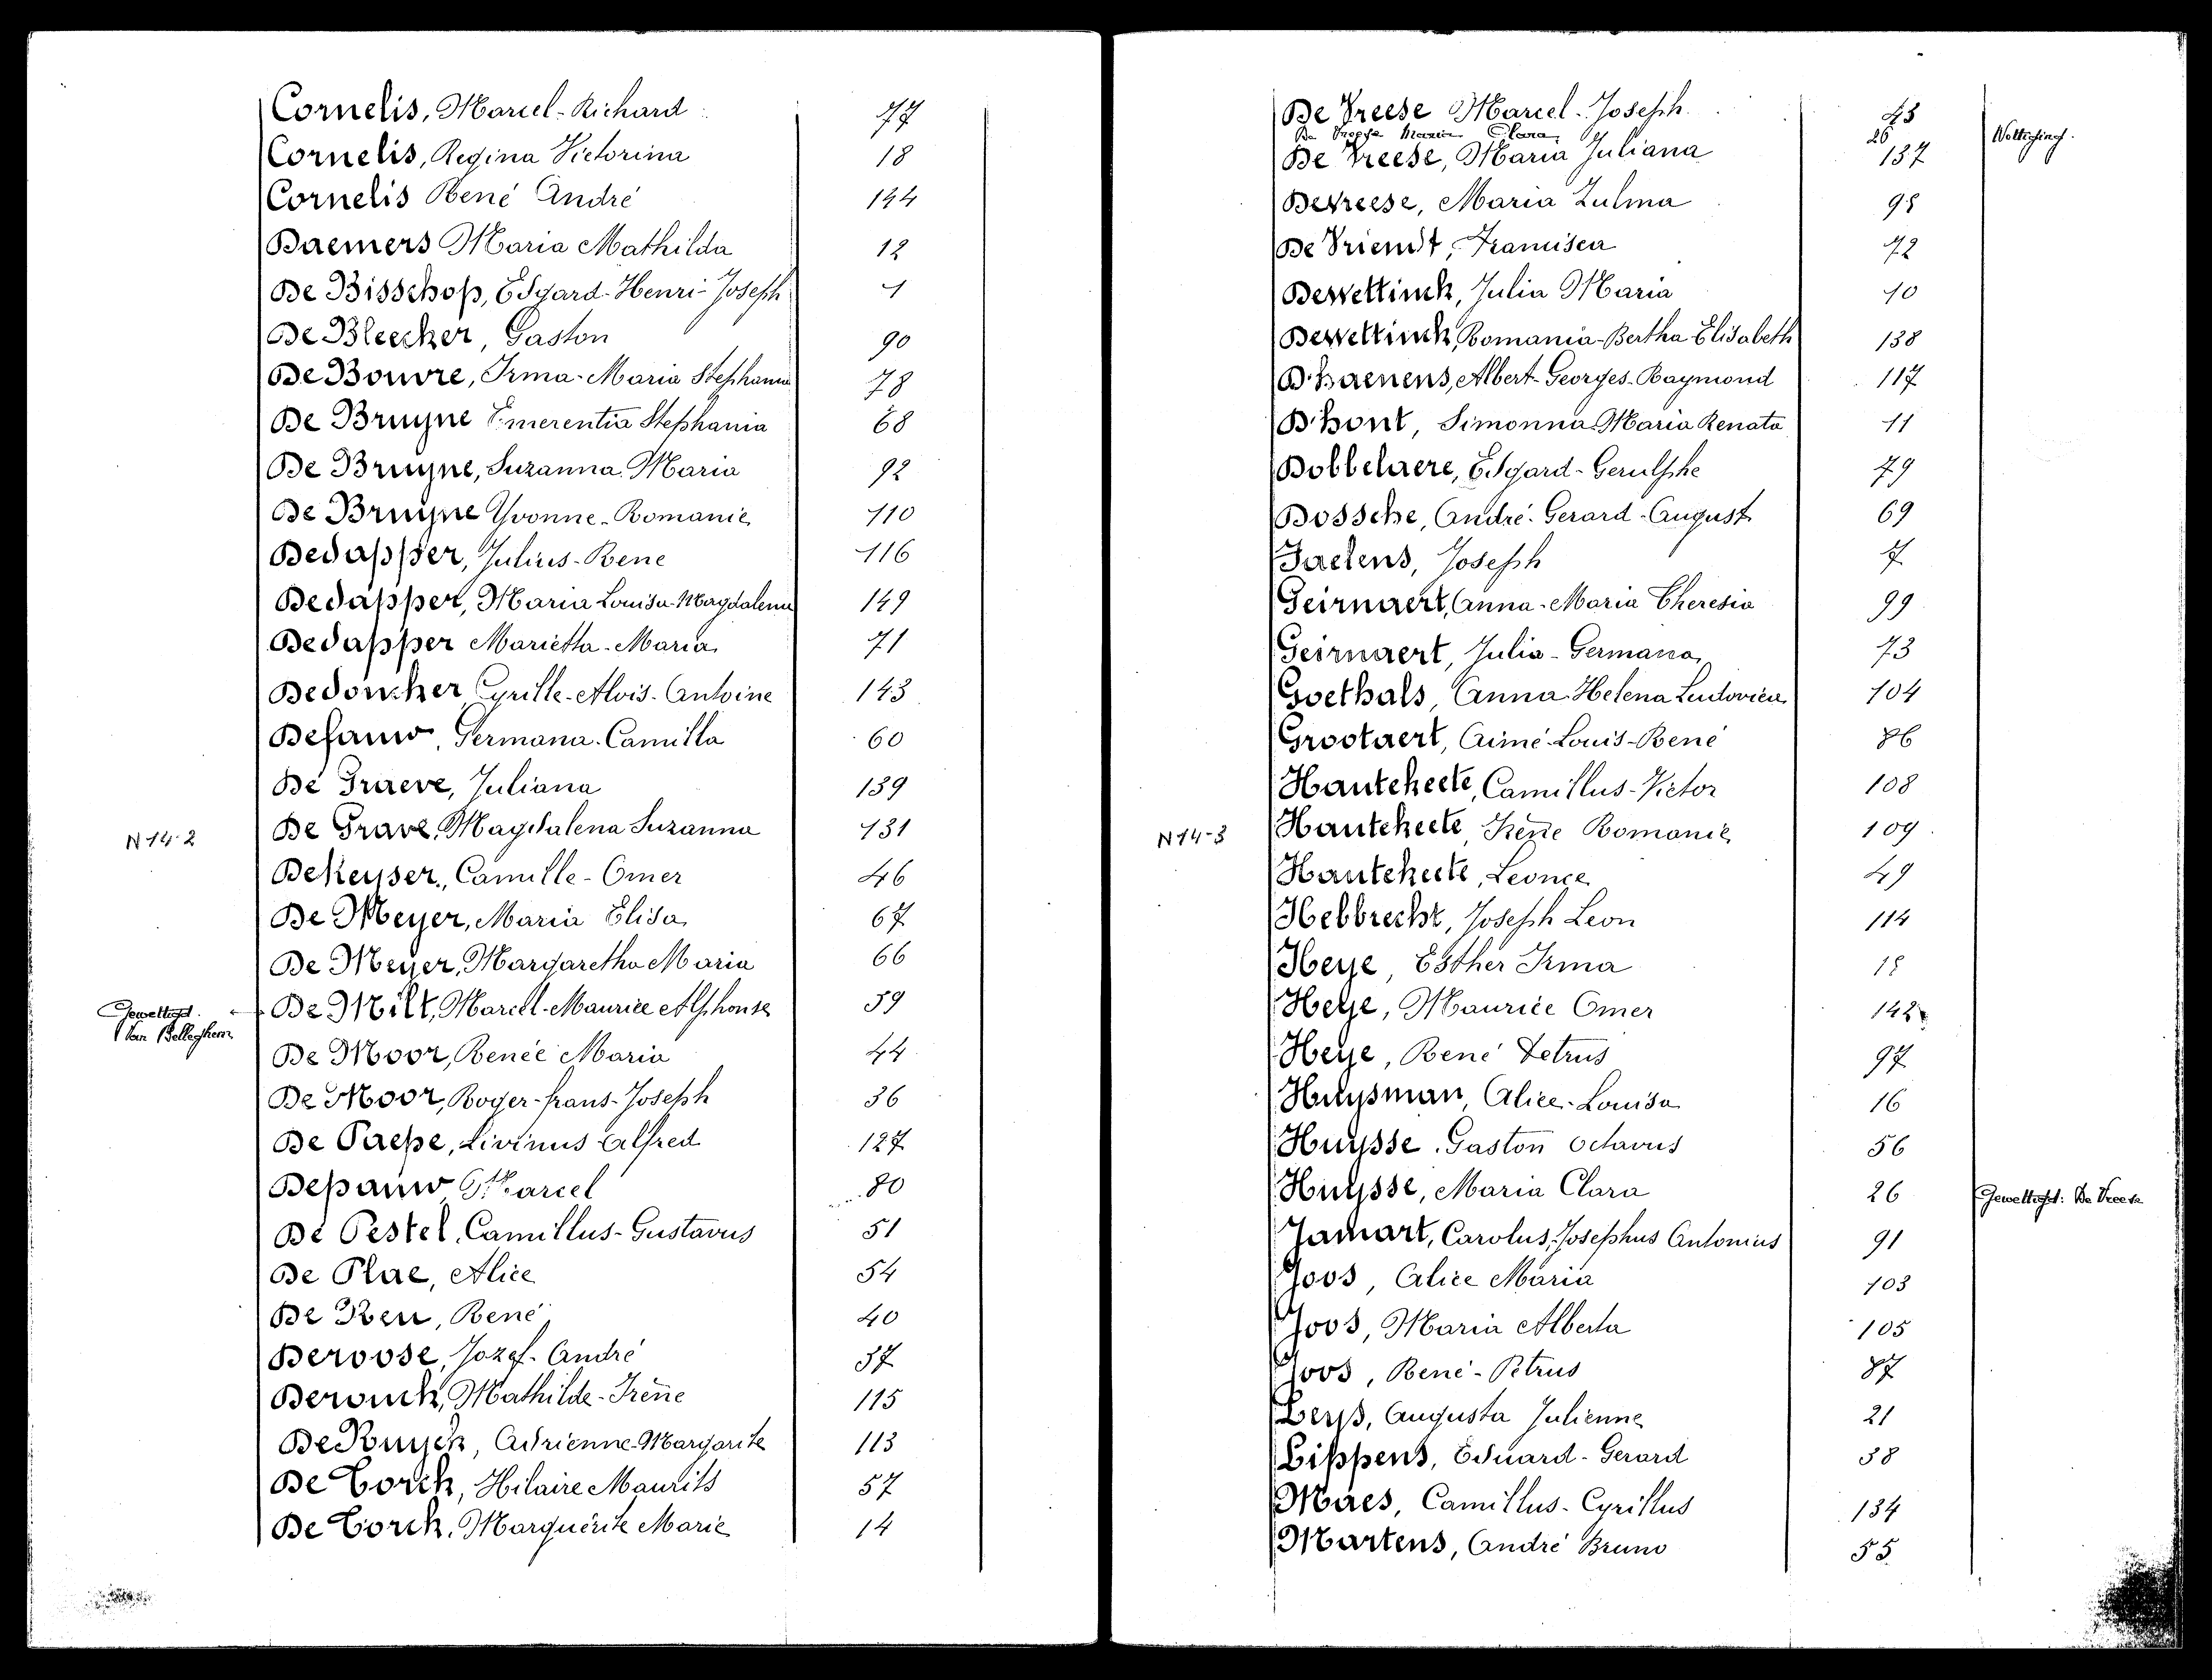 Cornelis, Marcel-Richard 77
Cornelis, Regina Victorina 18
Cornelis René André 144
Daemers Maria Mathilda 12
De Bisschop, Edgard-Henri-Joseph 1
De Bleecker, Gaston 90
De Bouvre, Irma-Maria Stephania 78
De Bruyne Emerentia Stephania 68
De Bruyne, Suzanna Maria 92
De Bruyne Yvonne-Romanie 110
Dedapper, Julius-Rene 116
Dedapper, Maria Louisa-Magdalena 149
Dedapper Marietta-Maria 71
Dedoncker Cyrille-Alois-Antoine 143
Defauw, Germana-Camilla 60
De Graeve, Juliana 139
N 14-2 De Grave, Magdalena Suzanna 131
DeKeyser, Camille-Omer 46
De Meyer, Maria Elisa 67
De Meyer, Margaretha Maria 66
Gewettigd. De Milt, Marcel-Maurice Alphonse 59
Van Belleghem
De Moor, Renée Maria 44
De Moor, Roger-frans-Joseph 36
De Paepe, Livinus Alfred 127
Depauw Marcel 80
De Pestel, Camillus-Gustavus 51
De Plae, Alice 54
De Reu, René 40
Deroose, Jozef-André 37
Derouck, Mathilde-Irène 115
De Ruyck, Adrienne-Margarite 113
De Corck, Hilaire Maurits 57
De Corck, Marguérite Marie 14
De Vreese Marcel-Joseph 45
De Vreese Maria Clara 26 Wettiging.
De Vreese, Maria Juliana 137
Devreese, Maria Zulma 98
De Vriendt, Francisca 72
Dewettinck, Julia Maria 10
Dewettinck, Romania-Bertha-Elisabeth 138
D'haenens, Albert-Georges-Raymond 117
D'hont, Simonna Maria Renata 11
Dobbelaere, Edgard-Gerulphe 79
Dossche, André-Gerard-August 69
Jaelens, Joseph 7
Geirnaert, Anna-Maria Theresia 99
Geirnaert, Julia-Germana 73
Goethals, Anna Helena Ludovica 104
Grootaert, Aimé-Louis-René 86
Hautekeete, Camillus-Victor 108
N 14-3 Hautekeete, Irène Romanie 109
Hautekeete, Leonce 49
Hebbrecht, Joseph Leon 114
Heye, Esther Irma 18
Heye, Maurice Omer 142
Heye, René Petrus 97
Huysman, Alice-Louisa 16
Huysse, Gaston Octavus 56
Huysse, Maria Clara 26 Gewettigd: De Vreese
Jamart, Carolus, Josephus Antonius 91
Joos, Alice Maria 103
Joos, Maria Alberta 105
Joos, René-Petrus 87
Leys, Augusta Julienne 21
Lippens, Eduard-Gerard 38
Maes, Camillus-Cyrillus 134
Martens, André Bruno 55